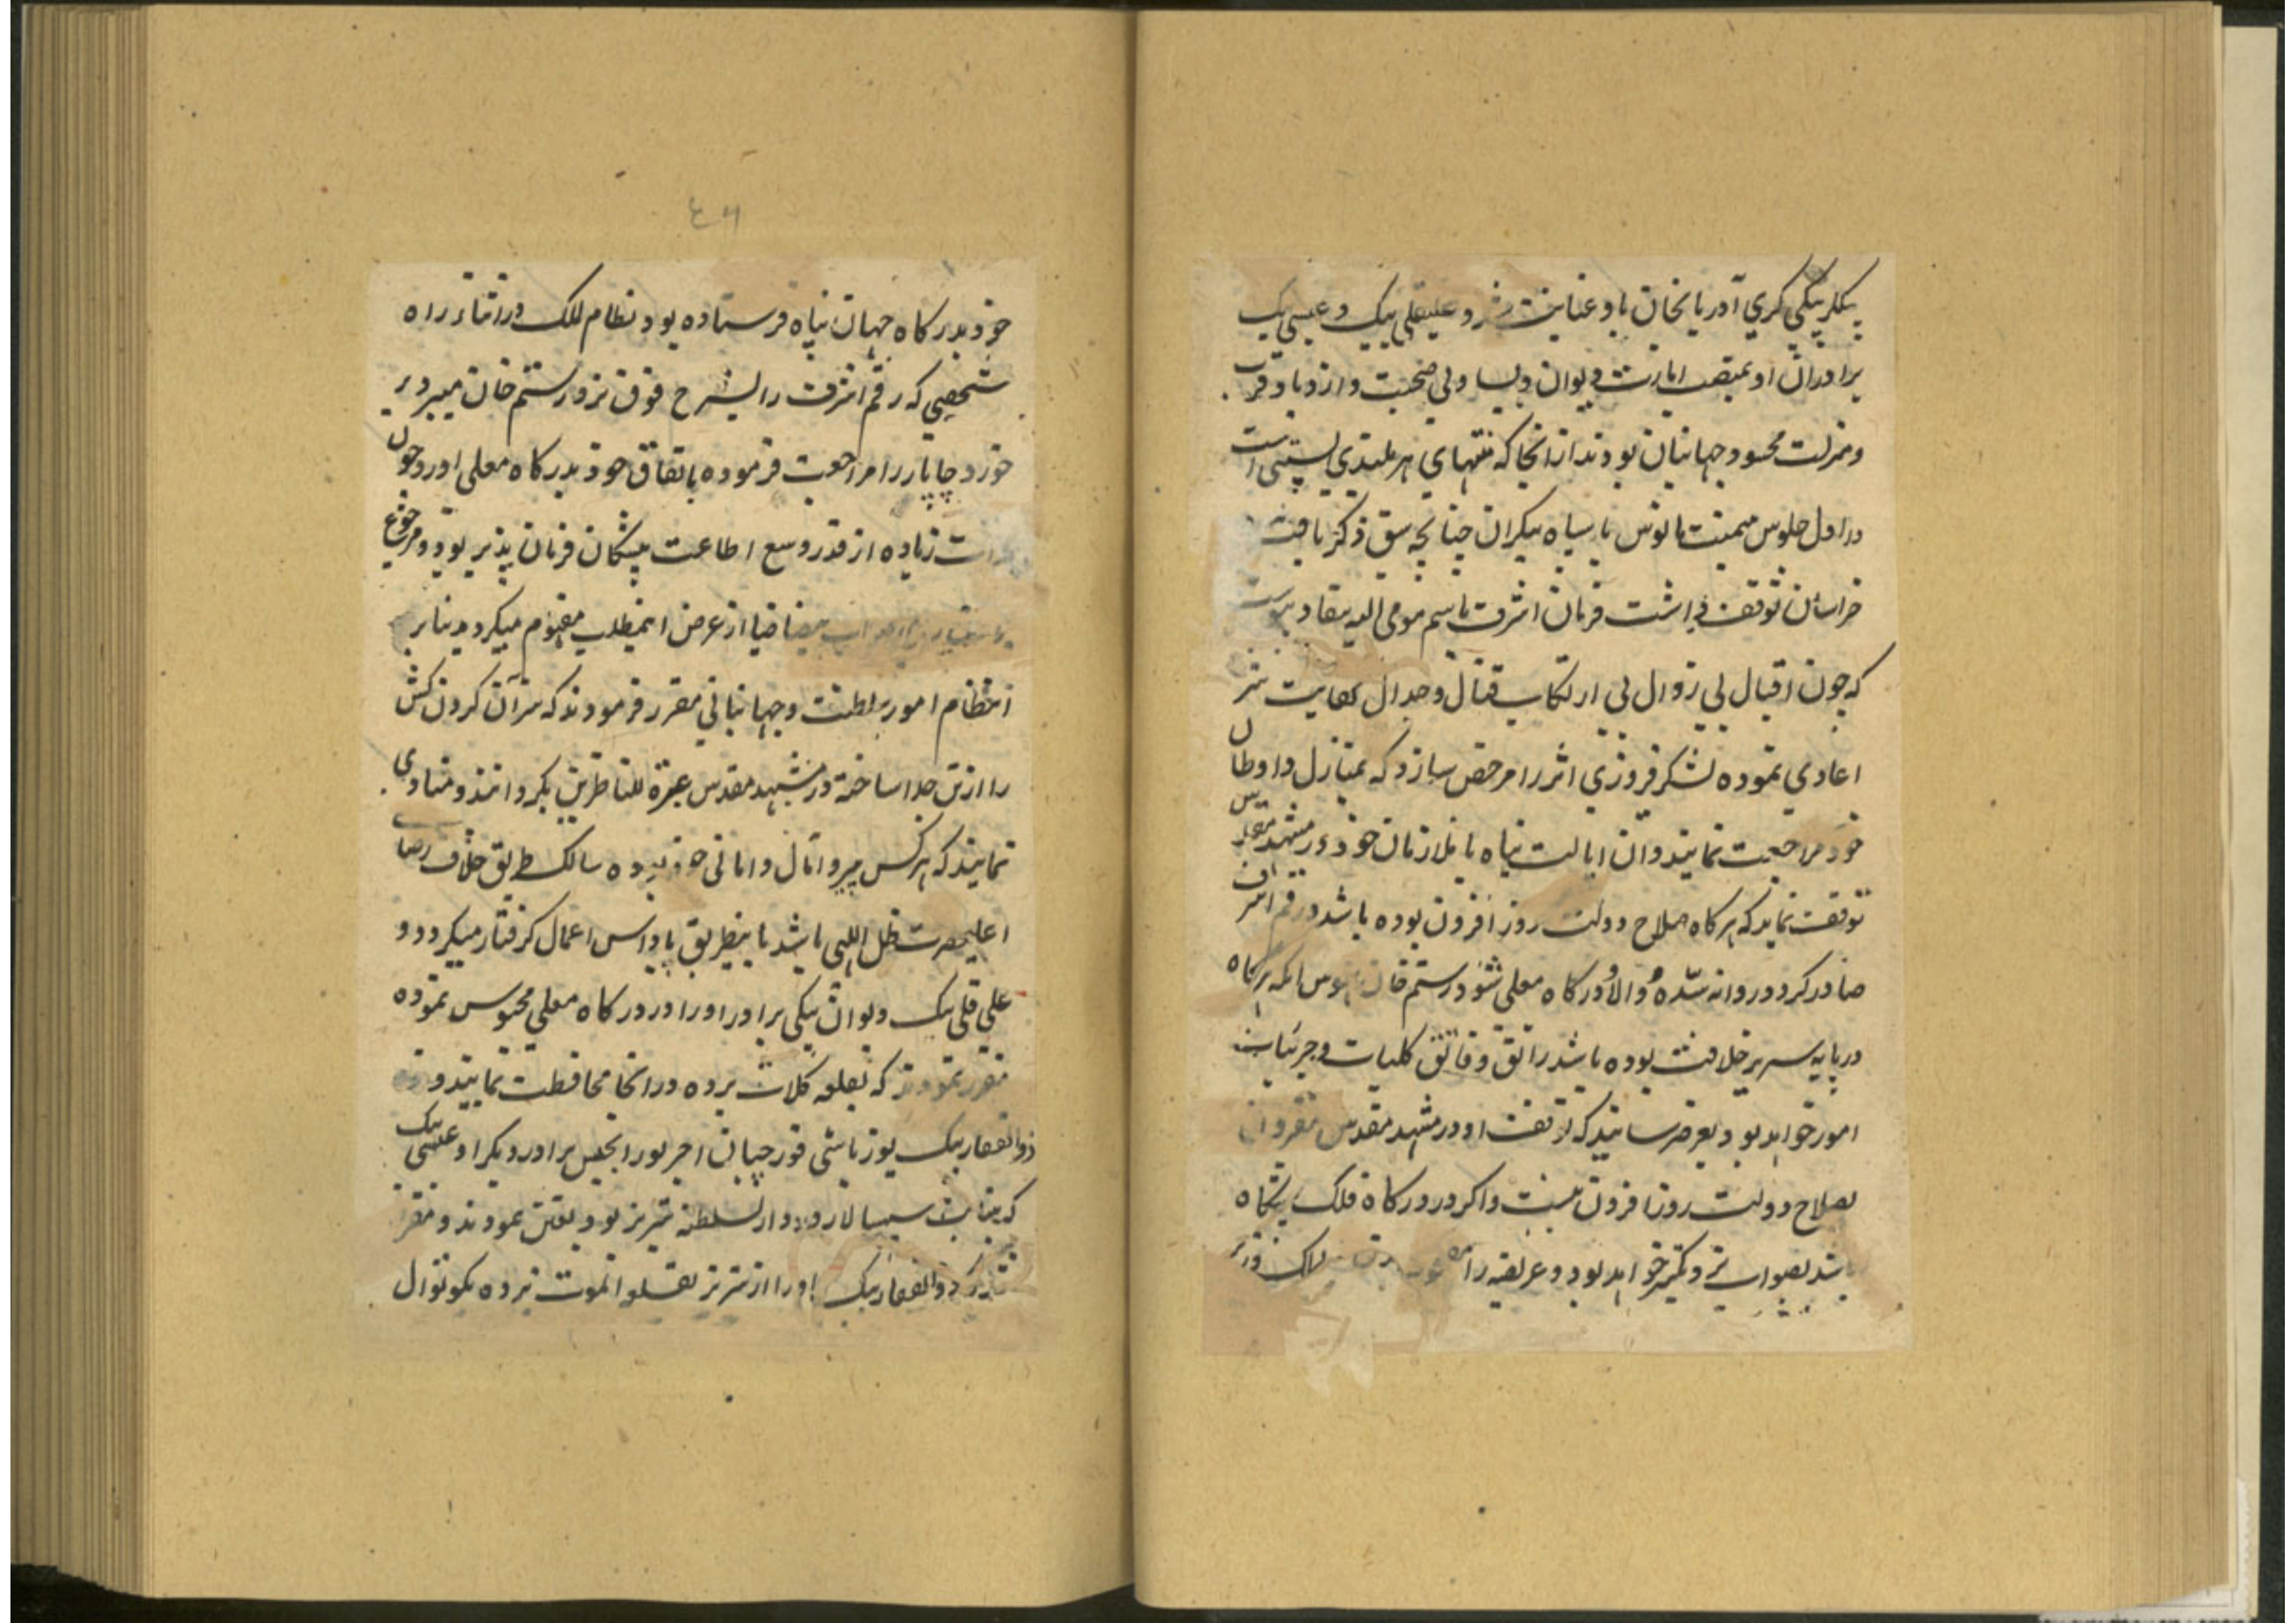 بیکلربیکی کری آذربایجان باو عنایت شد و علیقلی بیک و عیسی بیک
برادران او بمنصب امارت دیوان و یساولی صحبت و ازدیاد قرب
و منزلت محسود جهانیان بودند از آنجا که منتهای هر بلندی پستی است
در اول جلوس میمنت مانوس با سپاه بیکران چنانچه سبق ذکر یافت
خراسان توقف داشت فرمان اشرف باسم مومی الیه بنفاد پیوست
که چون اقبال بی زوال بی ارتکاب قتال و جدال کفایت شر
اعادی نموده لشکر فیروزی اثر را مرخص سازد که بمنازل و اوطان
خود مراجعت نمایند و آن ایالت پناه با ملازمان خود در مشهد مقدس
توقف نماید که هر کاه صلاح دولت روز افزون بوده باشد رقم اشرف
صادر کردد روانه شده والا در کاه معلی شود رستم خان که هر کاه
در پایه سریر خلافت بوده باشد راتق و فاتق کلیات و جزئیات
امور خواهد بود بعرض رسانید که توقف او در مشهد مقدس مقرون
بصلاح دولت روز افزون نیست و اکر در درکاه فلک پیشکاه
باشد بصواب نزدیکتر خواهد بود و عریضه را
خود بدرکاه جهان پناه فرستاده بود نظام الملک در اثناء راه
شخصی که رقم اشرف را بشرح فوق نزد رستم خان میبرد بر
خورد چاپار را مراجعت فرموده باتفاق خود بدرکاه معلی آورد چون
زیاده از قدر وسع اطاعت پیشکان فرمان پذیر بود و مرجوع
از عرض اینمطلب مفهوم میکردید بنابر
انتظام امور سلطنت و جهانبانی مقرر فرمودند که سر آن کردن کش
را از تن جدا ساخته در مشهد مقدس عبرة للناظرین بکردانند و منادی
نمایند که هر کس پیرو آمال و امانی خود بوده سالک طریق خلاف رضای
اعلیحضرت ظل اللهی باشد باینطریق پاداش اعمال کرفتار میکردد و
علی قلی بیک دیوان بیکی برادر او را در درکاه معلی محبوس نموده
مقرر نمودند که بقلعه کلات برده در آنجا محافظت نمایند و
ذوالفقار بیک یوزباشی قورچیان اجرلو را بحبس برادر دیکر او عیسی بیک
که بنیابت سپهسالار در دار السلطنه تبریز بود تعیین نمودند و مقرر
شد که ذوالفقار بیک او را از تبریز بقلعه الموت برده بکوتوال